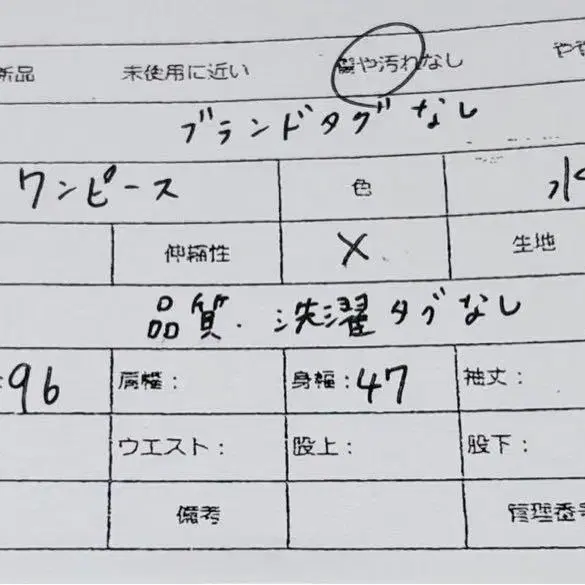 新品 未使用に近い 傷や汚れなし やや
ブランドタグなし
ワンピース 色 水
伸縮性 × 生地
品質・洗濯タグなし
:96 肩幅: 身幅:47 袖丈:
ウエスト: 股上: 股下:
備考 管理番号